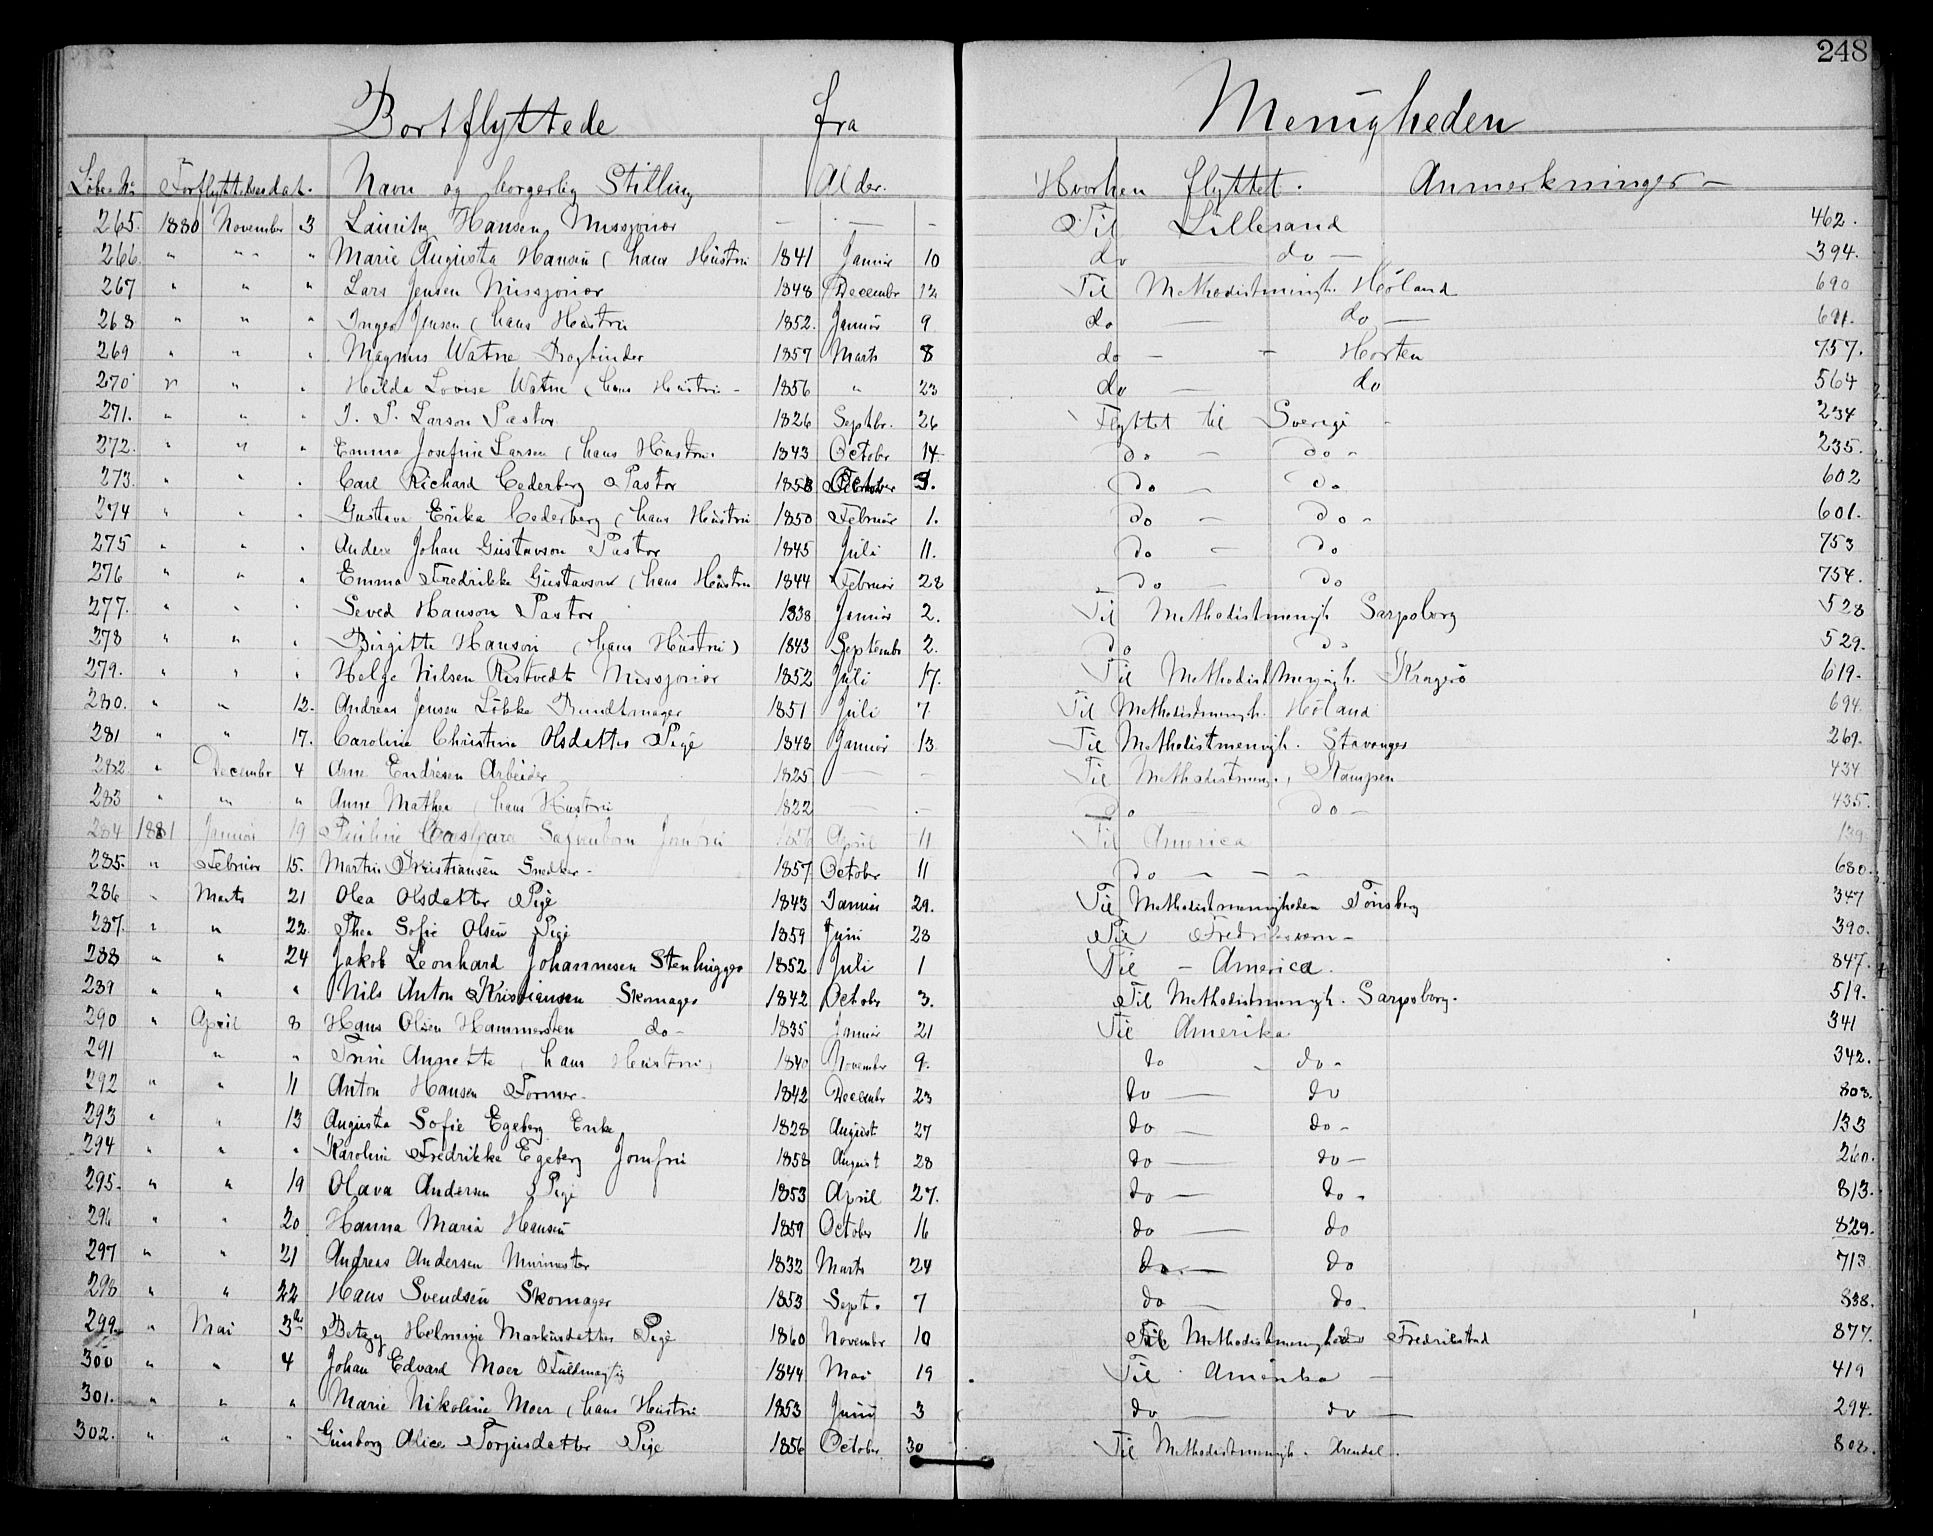 248
Bortflyttede fra Menigheden
Löbe No Forflyttelsesdat. Navn og borgerlig Stilling Alder. Hvorhen flyttet. Anmerkninger –
265. 1880 November 3 Lauritz Hansen Missjonær – – – Til Lillesand 462.
266. " " " " Marie Augusta Hansen ( hans Hustru 1841 Januar 10 do – do – 394.
267 " " " Lars Jensen Missjonær 1848 Decembr 12 Til Methodistmenigh. Höland 690
268 " " " Inger Jensen ( hans Hustru 1852. Januar 9 do – do – 691.
269 " " " Magnus Watne Bogbinder 1857 Marts 8 do – – Horten 757.
270 " " " Hilda Lovise Watne ( hans Hustru – 1856 " 23 do – do 564
271. " " " J. P. Larson Pastor 1826 Septbr. 26 Flyttet til Sverige - 234
272. " " " Emma Josefine Larsen ( hans Hustru. 1843 October 14 do – do - 235.
273. " " " Carl Richard Cederberg Pastor 1858 October 3. do – do 602
274 " " " Gustava Erika Cederberg ( hans Hustru 1850 Februar 1. do – do - 601.
275 " " " Anders Johan Gustavson Pastor 1845 Juli 11. do – do 753
276 " " " Emma Fredrikke Gustavson ( hans Hustru 1844 Februar 28 do – do 754.
277. " " " Seved Hanson Pastor 1838 Januar 2. Til Methodistmenigh Sarpsborg 528
278 " " " Birgitte Hanson ( hans Hustru ) 1843 Septembr 2. do do 529.
279. " " " Helge Nilsen Ristvedt Missjonær 1852 Juli 17. Til Methodist Menigh. Kragerö 619.
280. " " 12. Andreas Jensen Lökke Bundtmager 1851 Juli 7 Til Methodistmenigh. Höland 694.
281 " " 17. Caroline Christine Olsdatter Pige 1848 Januar 13 Til Methodistmenigh. Stavanger 269.
282. " Decembr 4 Arne Endresen Arbeider 1825 – – Til Methodistmenigh, Kampen 434
283 " " " Anne Mathea ( hans Hustru 1822 – - do do – 435.
284 1881 Januar 19 Pauline Caspara Jomfru April 11 Til America 139
285. " Februar 15. Martin Kristiansen Snedker - 1857 October 11 do – – – 680.
286 " Marts 21 Olea Olsdatter Pige 1843 Januar 29. Til Methodistmenigheden Tönsberg 347
287. " " 22. Thea Sofie Olsen Pige 1859 Juni 28 Til Fredriksvern – 390.
288 " " 24 Jakob Leonhard Johannesen Stenhugger 1852 Juli 1 Til – America. 847.
289 " " " Nils Anton Kristiansen Skomager 1842 Octobr 3. Til Methodistmenigh. Sarpsborg. 519.
290 " April 8 Hans Olsen Hammersten do – 1835 Januar 21 Til Amerika 341
291 " " Trine Annette ( hans Hustru ) 1840 November 9. do – do - 342.
292 " " 11 Anton Hansen Former – 1842 Decembr 23 do – do 803.
293 " " 13 Augusta Sofie Egeberg Enke 1828 August 27 do – do - 133
294 " " " Karoline Fredrikke Egeberg Jomfru 1858 August 28 do – do – 260.
295. " " 19 Olava Andersen Pige 1853 April 27. do – do - 813.
296 " " 20 Hanna Maria Hansen 1859 October 16 do – do 829.
297 " " 21 Andreas Andersen Murmester 1832 Marts 24 do – do 713
298 " " 22 Hans Svendsen Skomager 1853 Sept. 7 do – do 838.
299 " Mai 3de Betzy Helmine Markusdatter Pige 1860 November 10 Til Methodistmenigheden Fredrikstad 877.
300 " " 4 Johan Edvard Moer Fuldmægtig 1844 Mai 19 Til Amerika – 419
301. " " " Marie Nikoline Moer ( hans Hustru 1853 Juni 3 do – do – 294.
302. " " " Gunborg Alice Torjusdatter Pige 1856 October 30 Til Methodistmenigh. Arendal. 808.